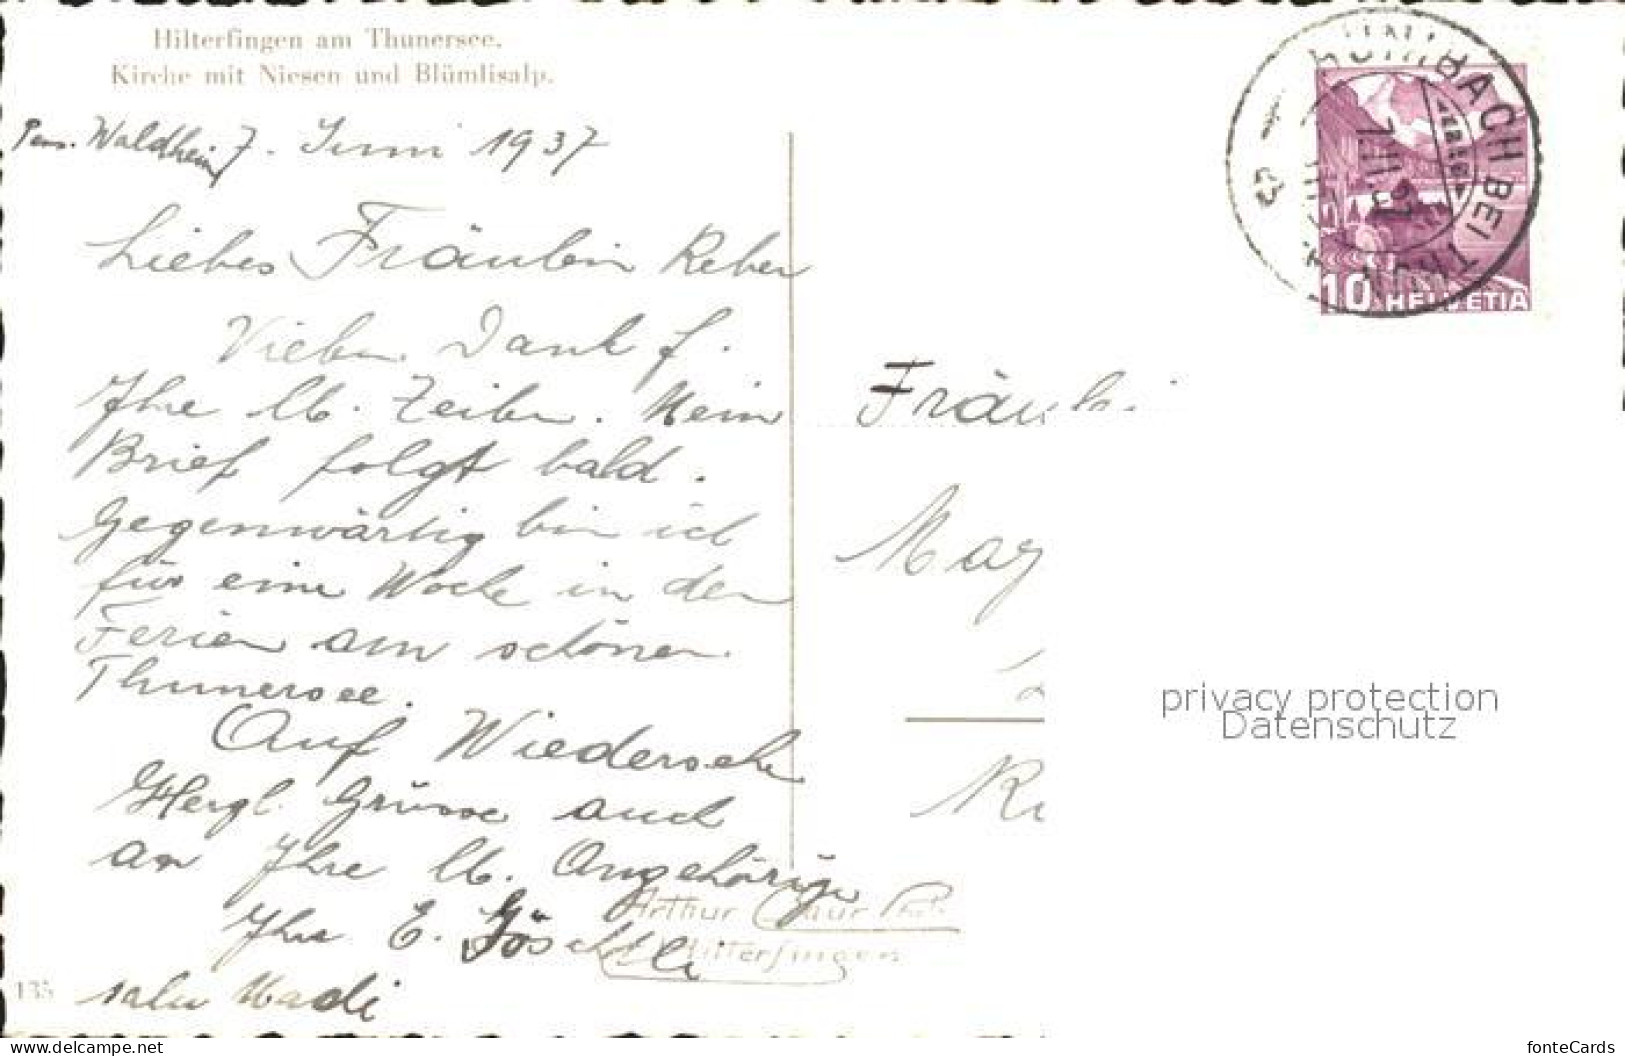 Hilterfingen am Thunersee.
Kirche mit Niesen und Blümlisalp.
Pens. Waldheim 7. Juni 1937
Liebes Fräulein Reber
Vielen Dank f.
Ihre lb. Zeilen. Mein
Brief folgt bald.
Gegenwärtig bin ich
für eine Woche in den
Ferien am schönen
Thunersee.
Auf Wiedersehen
Herzl. Grüsse auch
an Ihre lb. Angehörigen
Ihre E.
135
Fräulein
May
HÜNIBACH BEI THUN
10 HELVETIA
Arthur Baur Phot.
Hilterfingen
privacy protection
Datenschutz
www.delcampe.net
fonteCards